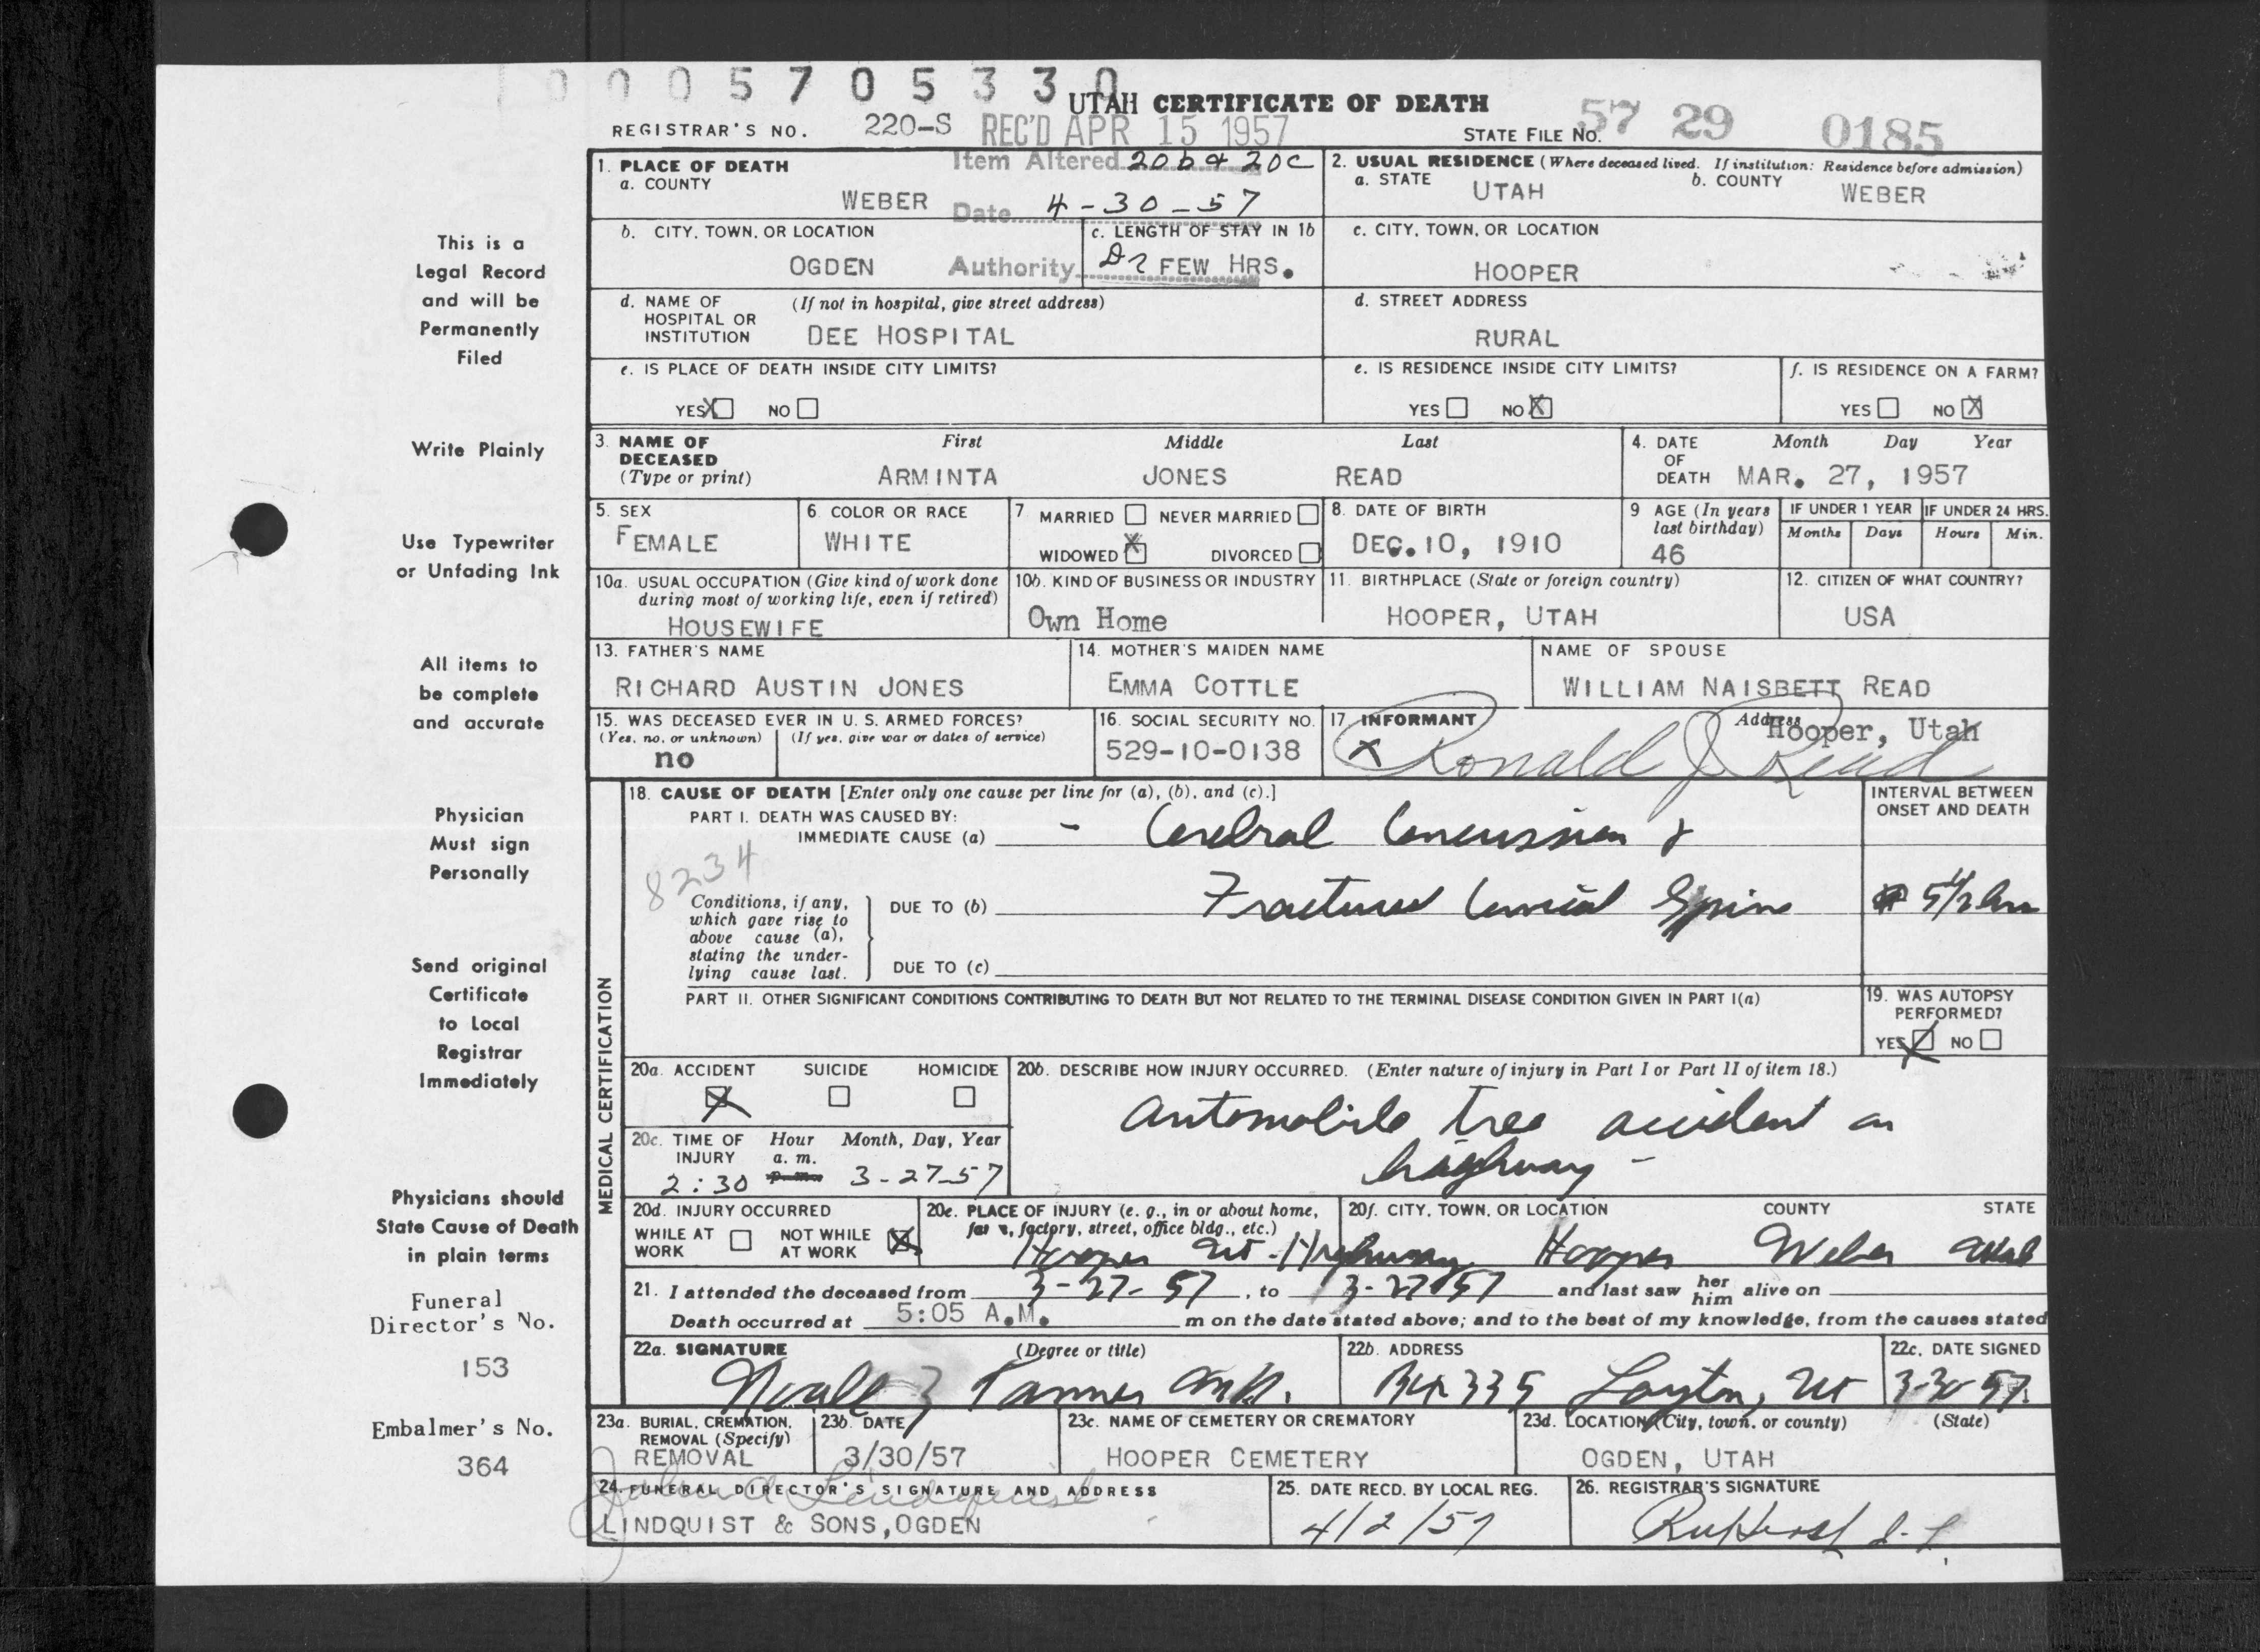 0 0 0 5 7 0 5 3 3 0
UTAH CERTIFICATE OF DEATH
REGISTRAR'S NO. 220-S REC'D APR 15 1957 STATE FILE NO. 57 29 0185
Item Altered 20b & 20c
Date 4-30-57
Authority Dr
1. PLACE OF DEATH
a. COUNTY
WEBER
2. USUAL RESIDENCE (Where deceased lived. If institution: Residence before admission)
a. STATE UTAH b. COUNTY WEBER
b. CITY, TOWN, OR LOCATION
OGDEN
c. LENGTH OF STAY IN 1b
FEW HRS.
c. CITY, TOWN, OR LOCATION
HOOPER
d. NAME OF HOSPITAL OR INSTITUTION (If not in hospital, give street address)
DEE HOSPITAL
d. STREET ADDRESS
RURAL
e. IS PLACE OF DEATH INSIDE CITY LIMITS?
YES X NO
e. IS RESIDENCE INSIDE CITY LIMITS?
YES NO X
f. IS RESIDENCE ON A FARM?
YES NO X
3. NAME OF DECEASED (Type or print)
First Middle Last
ARMINTA JONES READ
4. DATE OF DEATH Month Day Year
MAR. 27, 1957
5. SEX
FEMALE
6. COLOR OR RACE
WHITE
7 MARRIED NEVER MARRIED
WIDOWED X DIVORCED
8. DATE OF BIRTH
DEC. 10, 1910
9 AGE (In years last birthday)
46
IF UNDER 1 YEAR
Months Days
IF UNDER 24 HRS.
Hours Min.
10a. USUAL OCCUPATION (Give kind of work done during most of working life, even if retired)
HOUSEWIFE
10b. KIND OF BUSINESS OR INDUSTRY
Own Home
11. BIRTHPLACE (State or foreign country)
HOOPER, UTAH
12. CITIZEN OF WHAT COUNTRY?
USA
13. FATHER'S NAME
RICHARD AUSTIN JONES
14. MOTHER'S MAIDEN NAME
EMMA COTTLE
NAME OF SPOUSE
WILLIAM NAISBETT READ
15. WAS DECEASED EVER IN U. S. ARMED FORCES?
(Yes, no, or unknown) (If yes, give war or dates of service)
no
16. SOCIAL SECURITY NO.
529-10-0138
17. INFORMANT Address
Hooper, Utah
X Ronald J Read
MEDICAL CERTIFICATION
18. CAUSE OF DEATH [Enter only one cause per line for (a), (b), and (c).]
PART I. DEATH WAS CAUSED BY:
IMMEDIATE CAUSE (a) - Cerebral Concussion &
8234
Conditions, if any, which gave rise to above cause (a), stating the underlying cause last.
DUE TO (b) Fractured Cervical Spine
DUE TO (c)
INTERVAL BETWEEN ONSET AND DEATH
5 1/2 hrs
PART II. OTHER SIGNIFICANT CONDITIONS CONTRIBUTING TO DEATH BUT NOT RELATED TO THE TERMINAL DISEASE CONDITION GIVEN IN PART I(a)
19. WAS AUTOPSY PERFORMED?
YES X NO
20a. ACCIDENT SUICIDE HOMICIDE
X
20b. DESCRIBE HOW INJURY OCCURRED. (Enter nature of injury in Part I or Part II of item 18.)
Automobile tree accident on
highway -
20c. TIME OF INJURY Hour a. m. p. m. Month, Day, Year
2:30 3-27-57
20d. INJURY OCCURRED
WHILE AT WORK NOT WHILE AT WORK X
20e. PLACE OF INJURY (e. g., in or about home, farm, factory, street, office bldg., etc.)
Hooper Ut - Highway
20f. CITY, TOWN, OR LOCATION COUNTY STATE
Hooper Weber Utah
21. I attended the deceased from 3-27-57, to 3-27-57 and last saw her him alive on
Death occurred at 5:05 A.M. m on the date stated above; and to the best of my knowledge, from the causes stated
22a. SIGNATURE (Degree or title)
Tanner M.D.
22b. ADDRESS
Bx 335 Layton, Ut
22c. DATE SIGNED
3-30-57
23a. BURIAL, CREMATION, REMOVAL (Specify)
REMOVAL
23b. DATE
3/30/57
23c. NAME OF CEMETERY OR CREMATORY
HOOPER CEMETERY
23d. LOCATION (City, town, or county) (State)
OGDEN, UTAH
24. FUNERAL DIRECTOR'S SIGNATURE AND ADDRESS
Lindquist
LINDQUIST & SONS, OGDEN
25. DATE RECD. BY LOCAL REG.
4/2/57
26. REGISTRAR'S SIGNATURE
This is a
Legal Record
and will be
Permanently
Filed
Write Plainly
Use Typewriter
or Unfading Ink
All items to
be complete
and accurate
Physician
Must sign
Personally
Send original
Certificate
to Local
Registrar
Immediately
Physicians should
State Cause of Death
in plain terms
Funeral
Director's No.
153
Embalmer's No.
364